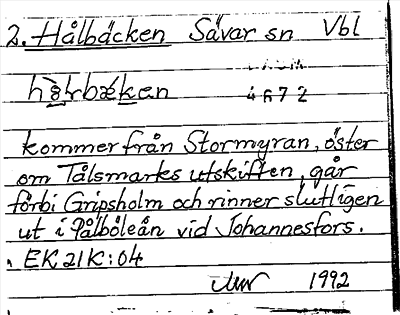 2. Hålbäcken Sävar sn Vbl
hål̀rbækan 4672
kommer från Stormyran, öster
om Tålsmarks utskiften, går
förbi Gripsholm och rinner slutligen
ut i Pålböleån vid Johannesfors.
EK 21K:04
1992